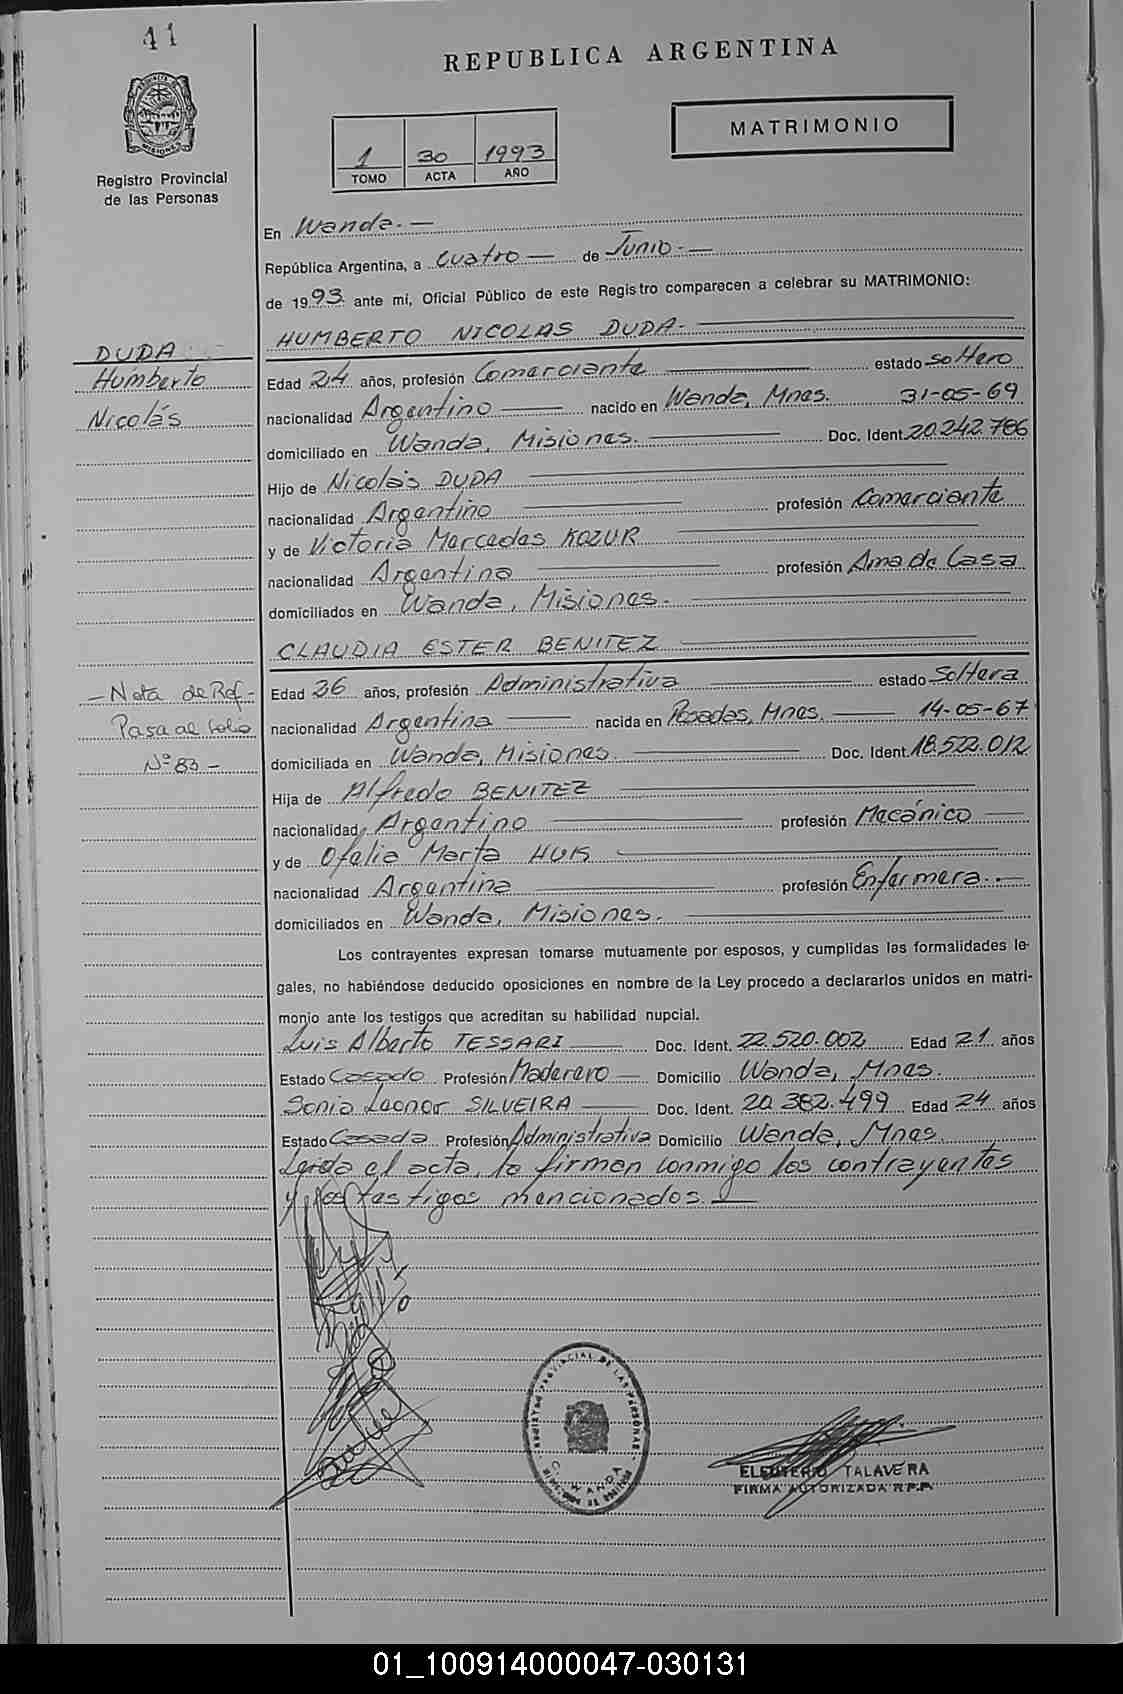 41
REPUBLICA ARGENTINA
MATRIMONIO
1 30 1993
TOMO ACTA AÑO
Registro Provincial
de las Personas
En Wanda.—
República Argentina, a Cuatro — de Junio.—
de 1993 ante mí, Oficial Público de este Registro comparecen a celebrar su MATRIMONIO:
HUMBERTO NICOLAS DUDA-
DUDA
Humberto
Nicolás
Edad 24 años, profesión Comerciante estado soltero
nacionalidad Argentino — nacido en Wanda, Mnes. 31-05-69
domiciliado en Wanda, Misiones. — Doc. Ident. 20.242.786
Hijo de Nicolás DUDA
nacionalidad Argentino — profesión Comerciante
y de Victoria Mercedes KOZUR
nacionalidad Argentina — profesión Ama de Casa
domiciliados en Wanda, Misiones.
CLAUDIA ESTER BENITEZ
- Nota de Ref-
Pasa al folio
Nº 83 -
Edad 26 años, profesión Administrativa — estado Soltera
nacionalidad Argentina — nacida en Posadas, Mnes. — 14-05-67
domiciliada en Wanda, Misiones. — Doc. Ident. 18.522.012
Hija de Alfredo BENITEZ
nacionalidad Argentino — profesión Mecánico —
y de Ofelia Marta HUK
nacionalidad Argentina — profesión Enfermera.—
domiciliados en Wanda, Misiones.
Los contrayentes expresan tomarse mutuamente por esposos, y cumplidas las formalidades le-
gales, no habiéndose deducido oposiciones en nombre de la Ley procedo a declararlos unidos en matri-
monio ante los testigos que acreditan su habilidad nupcial.
Luis Alberto TESSARI — Doc. Ident. 22.520.002 Edad 21 años
Estado Casado Profesión Maderero — Domicilio Wanda, Mnes.
Sonia Leonor SILVEIRA — Doc. Ident. 20.382.499 Edad 24 años
Estado Casada Profesión Administrativa Domicilio Wanda, Mnes.
Leida el acta, la firman conmigo los contrayentes
y los testigos mencionados.—
REGISTRO PROVINCIAL DE LAS PERSONAS
WANDA
ELEUTERIO TALAVERA
FIRMA AUTORIZADA R.P.P.
01_100914000047-030131